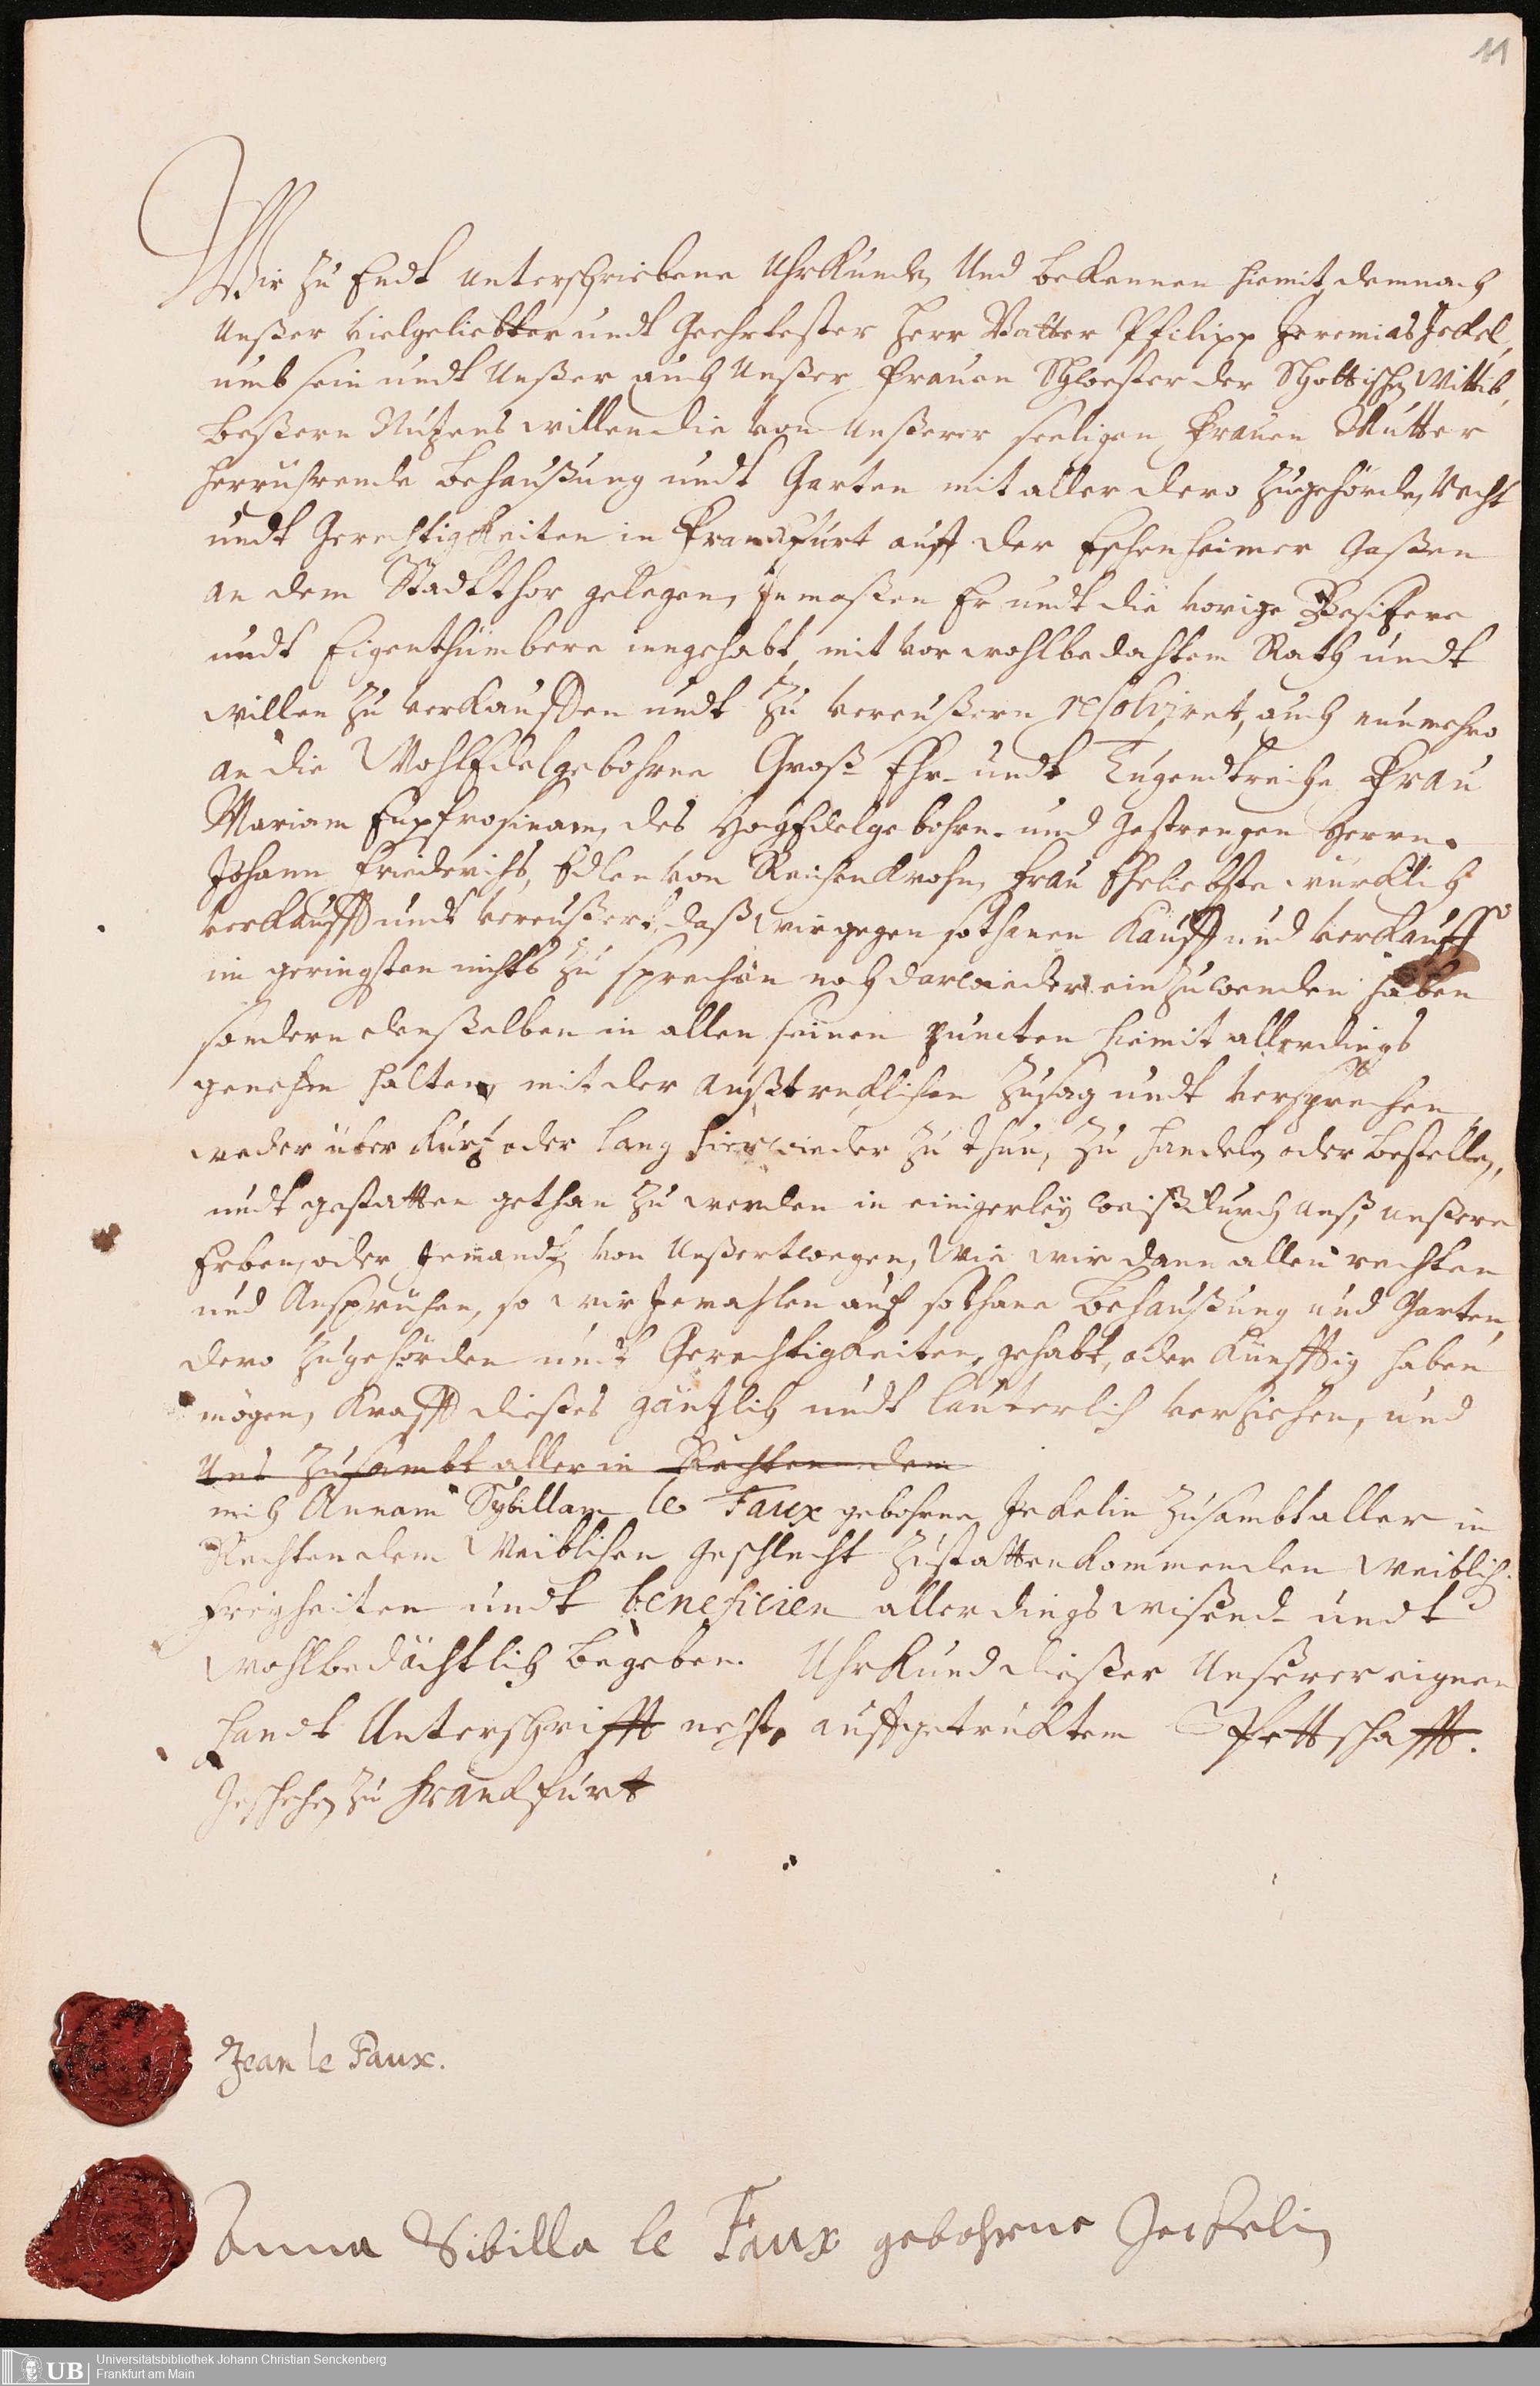 11
Wir zu Endt unterschriebene Uhrkunden Und bekennen hiemit, demnach
Unßer vielgeliebtter undt Geehrtester Herr Vatter Philipp Jeremias Jeckel,
umb sein undt Unßer auch Unßer Frauen Schwester der Schottischen Wittib,
beßern Nutzens willen die von Unßerer seeligen Frauen Mutter
herrührende Behaußung undt Garten mit aller dero Zugehörden, Recht
undt Gerechtigkeiten in Franckfurt auff der Eschenheimer Gaßen
an dem Stadtthor gelegen, Inmaßen Er undt die vorige Besitzere
undt Eigenthümbere inngehabt, mit vor wohlbedachtem Rath undt
willen zu verkauffen undt zu vereußern resolviret, auch nunmehro
an die WohlEdelgebohrne Groß Ehr- undt Tugendtreiche Frau
Mariam Euphrosinam, des HochEdelgebohrn- und Gestrengen Herrn
Johann Friederichs, Edlen von Reichenkrohn, Frau Eheliebste würcklich
verkaufft undt vereußert, daß wir gegen sothanen Kauff und verkauff
im geringsten nichts zu sprechen noch darwieder einzuwenden haben
sondern denselben in allen seinen puncten hiemit allerdings
genehm halten, mit der außtrucklichen Zusag undt versprechen,
weder über kurtz oder lang hierwieder zu thun, zu handeln oder bestellen,
undt gestatten gethan zu werden in einigerley weiß durch unß, unßere
Erben, oder Jemandt von Unßertwegen, Wie wir dann allen rechten
und Ansprüchen, so wir Jemahlen auf sothane Behaußung und Garten,
dero Zugehörden undt Gerechtigkeiten, gehabt, oder künfftig haben
mögen, Krafft dießes gäntzlich undt lauterlich verziehen, und
Uns zusambt aller in Rechten dem
mich Annam Sybillam le Faux gebohrne Jekelin zusambt aller in
Rechten dem Weiblichen Geschlecht zustatten kommenden weiblich.
Freyheiten undt beneficien allerdings wißend- undt
wohlbedächtlich begeben. Uhrkund dießer Unßerer eignen
Handt Unterschrifft nechst auffgetrucktem Pettschafft.
Geschehen zu Franckfurt
Jean le Faux.
Anna Sibilla le Faux gebohrne Jeckelin
UB Universitätsbibliothek Johann Christian Senckenberg
Frankfurt am Main